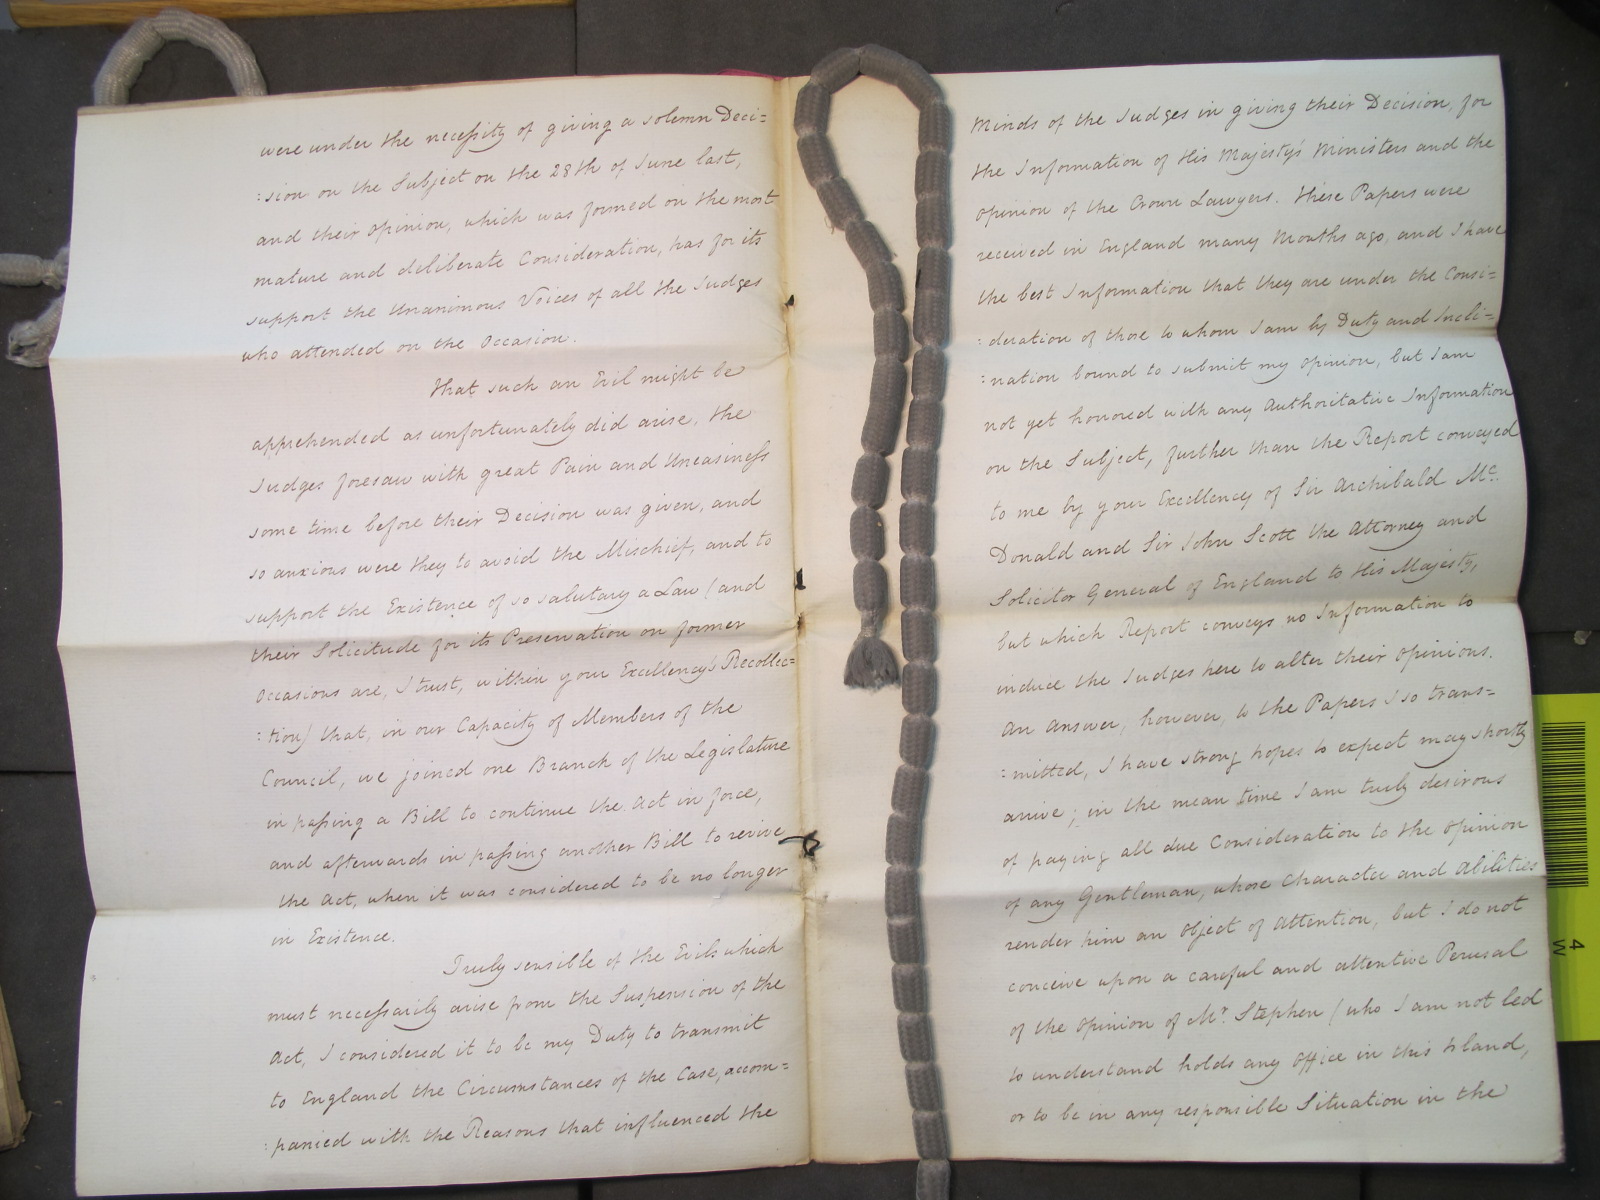 were under the necessity of giving a solemn Deci=
:sion on the Subject on the 28th of June last,
and their opinion, which was formed on the most
mature and deliberate Consideration, has for its
support the Unanimous Voices of all the Judges
who attended on the Occasion.
That such an Evil might be
apprehended as unfortunately did arise, the
Judges foresaw with great Pain and Uneasiness
some time before their Decision was given, and
so anxious were they to avoid the Mischief, and to
support the Existence of so salutary a Law (and
their Solicitude for its Preservation on former
Occasions are, I trust, within your Excellency's Recollec=
:tion) that, in our Capacity of Members of the
Council, we joined one Branch of the Legislature
in passing a Bill to continue the Act in force,
and afterwards in passing another Bill to revive
the Act, when it was considered to be no longer
in Existence.
Truly sensible of the Evils which
must necessarily arise from the Suspension of the
Act, I considered it to be my Duty to transmit
to England the Circumstances of the Case, accom=
:panied with the Reasons that influenced the
Minds of the Judges in giving their Decision, for
the Information of His Majesty's Ministers and the
opinion of the Crown Lawyers. These Papers were
received in England many Months ago, and I have
the best Information that they are under the Consi=
:deration of those to whom I am by Duty and Incli=
:nation bound to submit my opinion, but I am
not yet honored with any Authoritative Information
on the Subject, further than the Report conveyed
to me by your Excellency of Sir Archibald Mc.
Donald and Sir John Scott the Attorney and
Solicitor General of England to His Majesty,
but which Report conveys no Information to
induce the Judges here to alter their opinions.
An Answer, however, to the Papers I so trans=
:mitted, I have strong hopes to expect may shortly
arrive; in the mean time I am truly desirous
of paying all due Consideration to the opinion
of any Gentleman, whose Character and Abilities
render him an object of Attention, but I do not
conceive upon a careful and attentive Perusal
of the opinion of Mr. Stephen (who I am not led
to understand holds any office in this Island,
or to be in any responsible Situation in the
4
W